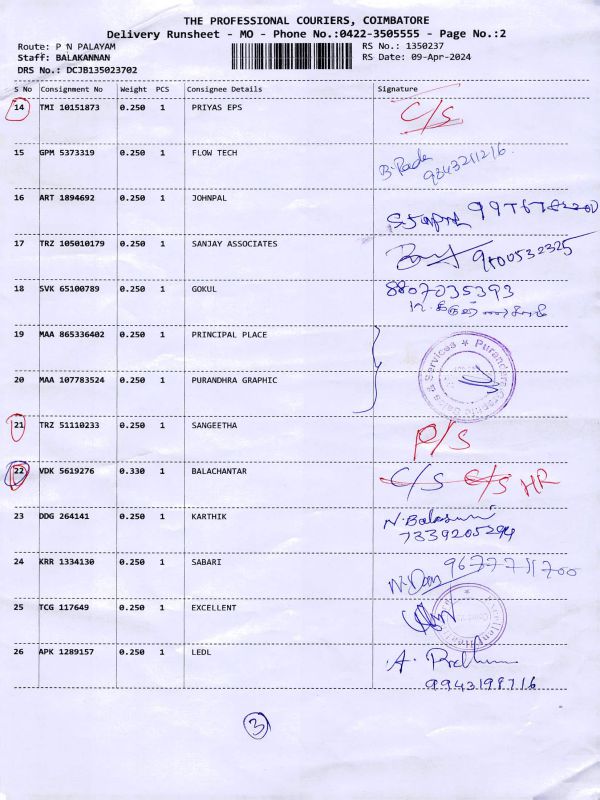 THE PROFESSIONAL COURIERS, COIMBATORE
Delivery Runsheet - MO - Phone No.:0422-3505555 - Page No.:2
Route: P N PALAYAM RS No.: 1350237
Staff: BALAKANNAN RS Date: 09-Apr-2024
DRS No.: DCJB135023702
S No Consignment No Weight PCS Consignee Details Signature
14 TMI 10151873 0.250 1 PRIYAS EPS C/S
15 GPM 5373319 0.250 1 FLOW TECH
9843211216
16 ART 1894692 0.250 1 JOHNPAL
17 TRZ 105010179 0.250 1 SANJAY ASSOCIATES 9500532325
18 SVK 65100789 0.250 1 GOKUL 8807035393
19 MAA 865336402 0.250 1 PRINCIPAL PLACE
20 MAA 107783524 0.250 1 PURANDHRA GRAPHIC
21 TRZ 51110233 0.250 1 SANGEETHA P/S
22 VDK 5619276 0.330 1 BALACHANTAR C/S C/S HR
23 DDG 264141 0.250 1 KARTHIK N. Balasuni
7339205294
24 KRR 1334130 0.250 1 SABARI 9677711700
25 TCG 117649 0.250 1 EXCELLENT
26 APK 1289157 0.250 1 LEDL A.
9943198716
3